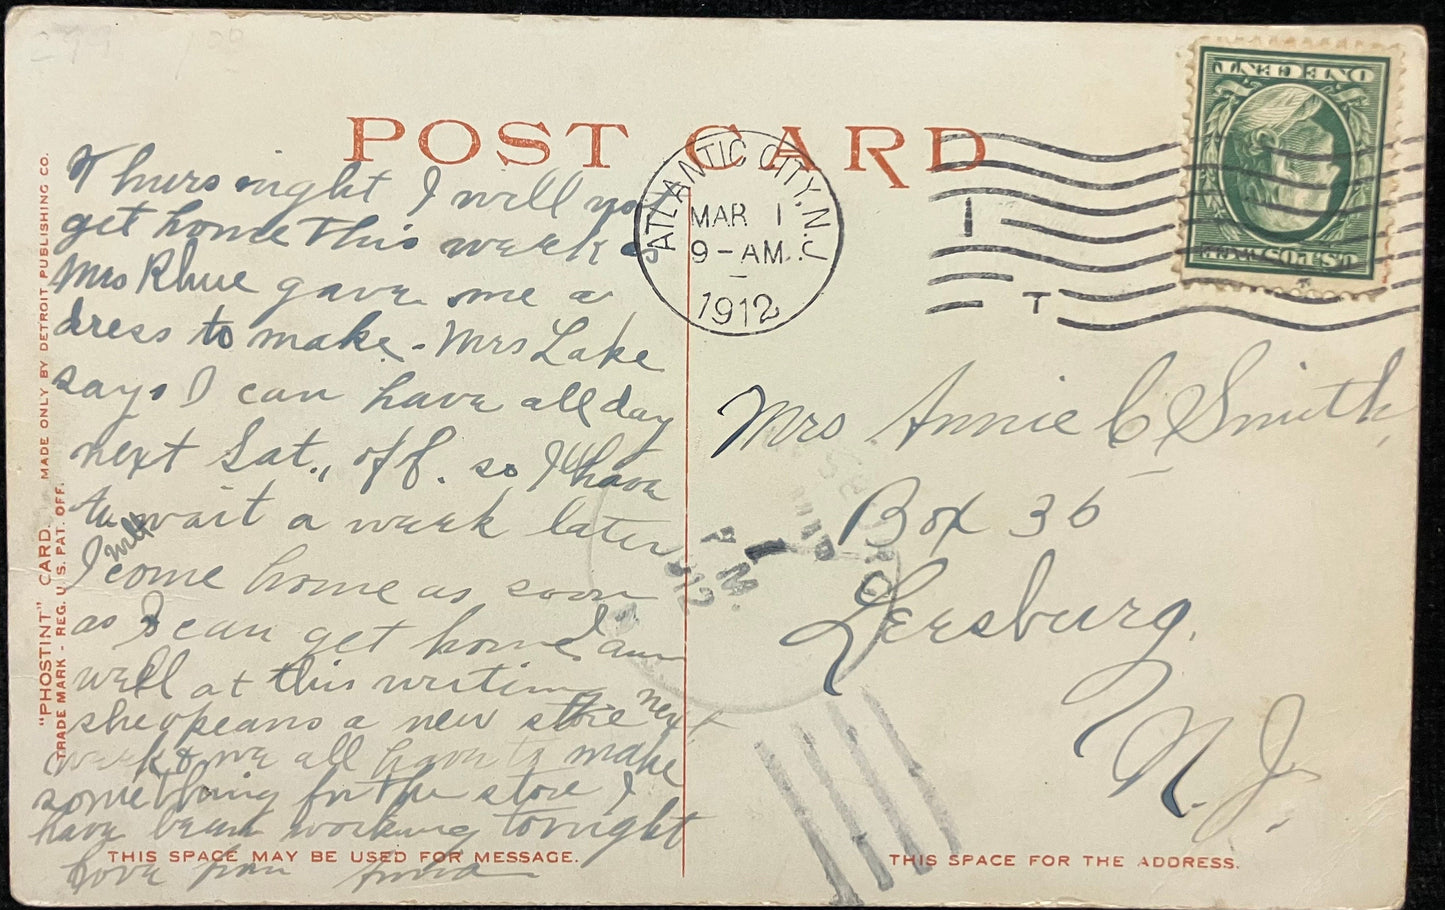 299 1 00
POST CARD
ATLANTIC CITY, N.J.
MAR 1
9-AM.
1912
ONE CENT
U.S. POSTAGE
1
T
"PHOSTINT" CARD. MADE ONLY BY DETROIT PUBLISHING CO.
TRADE MARK - REG. U. S. PAT. OFF.
Thurs night I will not
get home this week &
Mrs Rhue gave me a
dress to make. Mrs Lake
says I can have all day
next Sat., off. so I'll have
to wait a week later
I will come home as soon
as I can get home. I am
well at this writing
she opeans a new store next
week & we all have to make
something for the store I
have been working tonight
Love from Anna
Mrs Annie C Smith,
Box 36
Leesburg,
N. J.
P M.
1912
THIS SPACE MAY BE USED FOR MESSAGE.
THIS SPACE FOR THE ADDRESS.